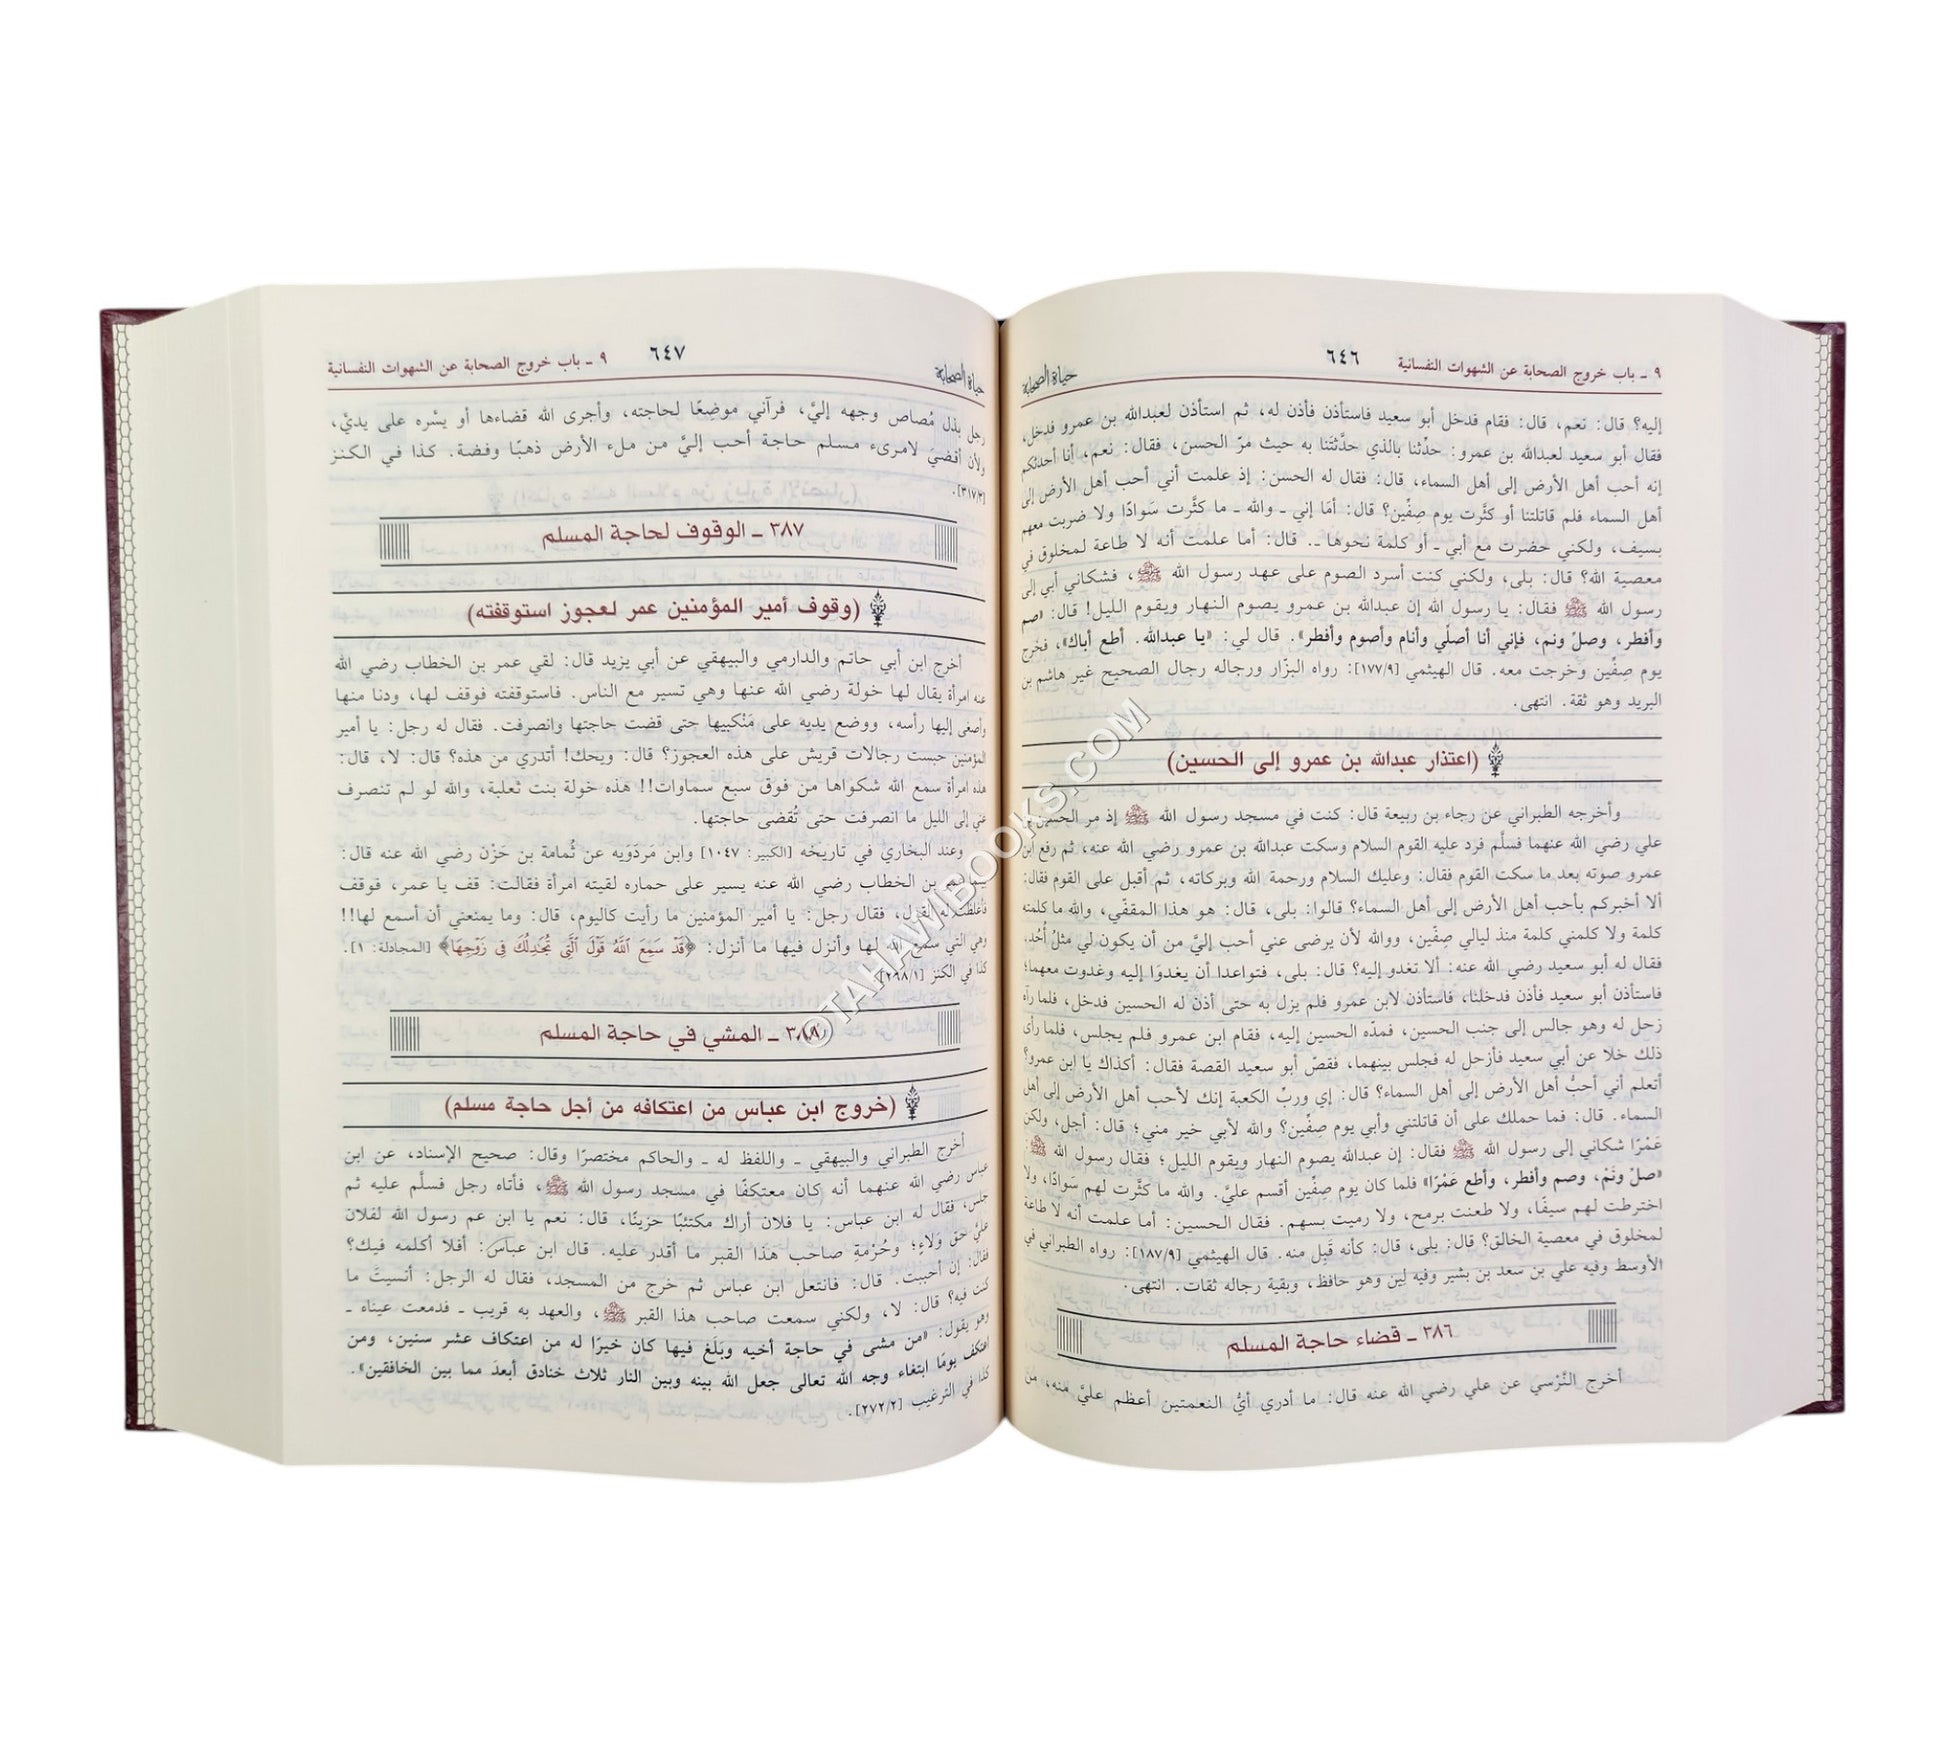 ٩ ـ باب خروج الصحابة عن الشهوات النفسانية ٦٤٦ حياة الصحابة
إليه؟ قال: نعم، قال: فقام فدخل أبو سعيد فاستأذن فأذن له، ثم استأذن لعبدالله بن عمرو فدخل،
فقال أبو سعيد لعبدالله بن عمرو: حدِّثنا بالذي حدَّثتَنا به حيث مرّ الحسن، فقال: نعم، أنا أحدثكم
إنه أحب أهل الأرض إلى أهل السماء، قال: فقال له الحسن: إذ علمت أني أحب أهل الأرض إلى
أهل السماء فلم قاتلتنا أو كثَّرت يوم صِفِّين؟ قال: أمَا إني ـ والله ـ ما كثَّرت سَوادًا ولا ضربت معهم
بسيف، ولكني حضرت مع أبي ـ أو كلمة نحوها ـ. قال: أما علمت أنه لا طاعة لمخلوق في
معصية الله؟ قال: بلى، ولكني كنت أسرد الصوم على عهد رسول الله ﷺ، فشكاني أبي إلى
رسول الله ﷺ فقال: يا رسول الله إن عبدالله بن عمرو يصوم النهار ويقوم الليل! قال: «صم
وأفطر، وصلِّ ونم، فإني أنا أصلّي وأنام وأصوم وأفطر». قال لي: «يا عبدالله. أطع أباك»، فخرج
يوم صِفِّين وخرجت معه. قال الهيثمي [١٧٧/٩]: رواه البزّار ورجاله رجال الصحيح غير هاشم بن
البريد وهو ثقة. انتهى.
(اعتذار عبدالله بن عمرو إلى الحسين)
وأخرجه الطبراني عن رجاء بن ربيعة قال: كنت في مسجد رسول الله ﷺ إذ مر الحسين بن
علي رضي الله عنهما فسلَّم فرد عليه القوم السلام وسكت عبدالله بن عمرو رضي الله عنه، ثم رفع ابن
عمرو صوته بعد ما سكت القوم فقال: وعليك السلام ورحمة الله وبركاته، ثم أقبل على القوم فقال:
ألا أخبركم بأحب أهل الأرض إلى أهل السماء؟ قالوا: بلى، قال: هو هذا المقفّي، والله ما كلمته
كلمة ولا كلمني كلمة منذ ليالي صِفِّين، ووالله لأن يرضى عني أحب إليَّ من أن يكون لي مثلُ أُحُد.
فقال له أبو سعيد رضي الله عنه: ألا تغدو إليه؟ قال: بلى، فتواعدا أن يغدوَا إليه وغدوت معهما؛
فاستأذن أبو سعيد فأذن فدخلنا، فاستأذن لابن عمرو فلم يزل به حتى أذن له الحسين فدخل، فلما رآه
زحل له وهو جالس إلى جنب الحسين، فمدّه الحسين إليه، فقام ابن عمرو فلم يجلس، فلما رأى
ذلك خلا عن أبي سعيد فأزحل له فجلس بينهما، فقصّ أبو سعيد القصة فقال: أكذاك يا ابن عمرو؟
أتعلم أني أحبُّ أهل الأرض إلى أهل السماء؟ قال: إي وربِّ الكعبة إنك لأحب أهل الأرض إلى أهل
السماء. قال: فما حملك على أن قاتلتني وأبي يوم صِفِّين؟ والله لأبي خير مني؛ قال: أجل، ولكن
عَمْرًا شكاني إلى رسول الله ﷺ فقال: إن عبدالله يصوم النهار ويقوم الليل؛ فقال رسول الله ﷺ:
«صلِّ ونَمْ، وصم وأفطر، وأطع عَمْرًا» فلما كان يوم صِفِّين أقسم عليَّ. والله ما كثَّرت لهم سَوادًا، ولا
اخترطت لهم سيفًا، ولا طعنت برمح، ولا رميت بسهم. فقال الحسين: أما علمت أنه لا طاعة
لمخلوق في معصية الخالق؟ قال: بلى، قال: كأنه قَبِل منه. قال الهيثمي [١٨٧/٩]: رواه الطبراني في
الأوسط وفيه علي بن سعد بن بشير وفيه لِين وهو حافظ، وبقية رجاله ثقات. انتهى.
٣٨٦ ـ قضاء حاجة المسلم
أخرج النَّرْسي عن علي رضي الله عنه قال: ما أدري أيُّ النعمتين أعظم عليَّ منه، من
٩ ـ باب خروج الصحابة عن الشهوات النفسانية ٦٤٧ حياة الصحابة
رجل بذل مُصاص وجهه إليَّ، فرآني موضِعًا لحاجته، وأجرى الله قضاءها أو يسَّره على يديَّ،
ولأن أقضيَ لامرىء مسلم حاجة أحب إليَّ من ملء الأرض ذهبًا وفضة. كذا في الكنز
[٣١٧/٣].
٣٨٧ ـ الوقوف لحاجة المسلم
(وقوف أمير المؤمنين عمر لعجوز استوقفته)
أخرج ابن أبي حاتم والدارمي والبيهقي عن أبي يزيد قال: لقي عمر بن الخطاب رضي الله
عنه امرأة يقال لها خولة رضي الله عنها وهي تسير مع الناس. فاستوقفته فوقف لها، ودنا منها
وأصغى إليها رأسه، ووضع يديه على مَنْكبيها حتى قضت حاجتها وانصرفت. فقال له رجل: يا أمير
المؤمنين حبست رجالات قريش على هذه العجوز؟ قال: ويحك! أتدري من هذه؟ قال: لا، قال:
هذه امرأة سمع الله شكواها من فوق سبع سماوات!! هذه خولة بنت ثعلبة، والله لو لم تنصرف
عني إلى الليل ما انصرفت حتى تُقضى حاجتها.
وعند البخاري في تاريخه [الكبير: ١٠٤٧] وابن مَردَوَيه عن ثُمامة بن حَزْن رضي الله عنه قال:
بينما عمر بن الخطاب رضي الله عنه يسير على حماره لقيته امرأة فقالت: قف يا عمر، فوقف
فأغلظت له القول، فقال رجل: يا أمير المؤمنين ما رأيت كاليوم، قال: وما يمنعني أن أسمع لها!!
وهي التي سمع الله لها وأنزل فيها ما أنزل: ﴿قَدْ سَمِعَ ٱللَّهُ قَوْلَ ٱلَّتِى تُجَٰدِلُكَ فِى زَوْجِهَا﴾ [المجادلة: ١].
كذا في الكنز [٢٩٨/١].
٣٨٨ ـ المشي في حاجة المسلم
(خروج ابن عباس من اعتكافه من أجل حاجة مسلم)
أخرج الطبراني والبيهقي ـ واللفظ له ـ والحاكم مختصرًا وقال: صحيح الإسناد، عن ابن
عباس رضي الله عنهما أنه كان معتكفًا في مسجد رسول الله ﷺ، فأتاه رجل فسلَّم عليه ثم
جلس، فقال له ابن عباس: يا فلان أراك مكتئبًا حزينًا، قال: نعم يا ابن عم رسول الله لفلان
عليَّ حق وَلاءٍ؛ وحُرْمَةِ صاحب هذا القبر ما أقدر عليه. قال ابن عباس: أفلا أكلمه فيك؟
فقال: إن أحببت. قال: فانتعل ابن عباس ثم خرج من المسجد، فقال له الرجل: أنسيتَ ما
كنت فيه؟ قال: لا، ولكني سمعت صاحب هذا القبر ﷺ، والعهد به قريب ـ فدمعت عيناه ـ
وهو يقول: «من مشى في حاجة أخيه وبَلَغ فيها كان خيرًا له من اعتكاف عشر سنين، ومن
اعتكف يومًا ابتغاء وجه الله تعالى جعل الله بينه وبين النار ثلاث خنادق أبعدَ مما بين الخافقين».
كذا في الترغيب [٢٧٢/٢].
©TAHAWIBOOKS.COM